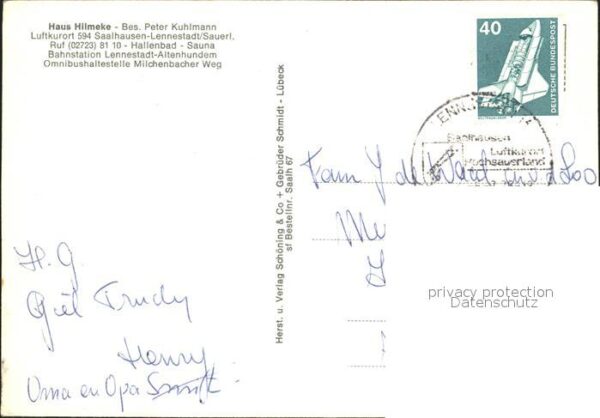 Haus Hilmeke - Bes. Peter Kuhlmann
Luftkurort 594 Saalhausen-Lennestadt/Sauerl.
Ruf (02723) 81 10 - Hallenbad - Sauna
Bahnstation Lennestadt-Altenhundem
Omnibushaltestelle Milchenbacher Weg
40
DEUTSCHE BUNDESPOST
Saalhausen
Luftkurort
Hochsauerland
Herst. u. Verlag Schöning & Co + Gebrüder Schmidt - Lübeck
sf Bestellnr. Saalh 67
Fam J de
Me
H. G
Giel Trudy
Henny
Oma en Opa Smit
privacy protection
Datenschutz